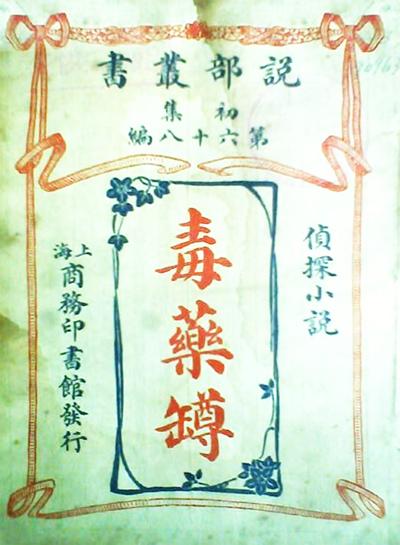 説部叢書
初集
第六十八編
偵探小説
毒藥罇
上海
商務印書館發行